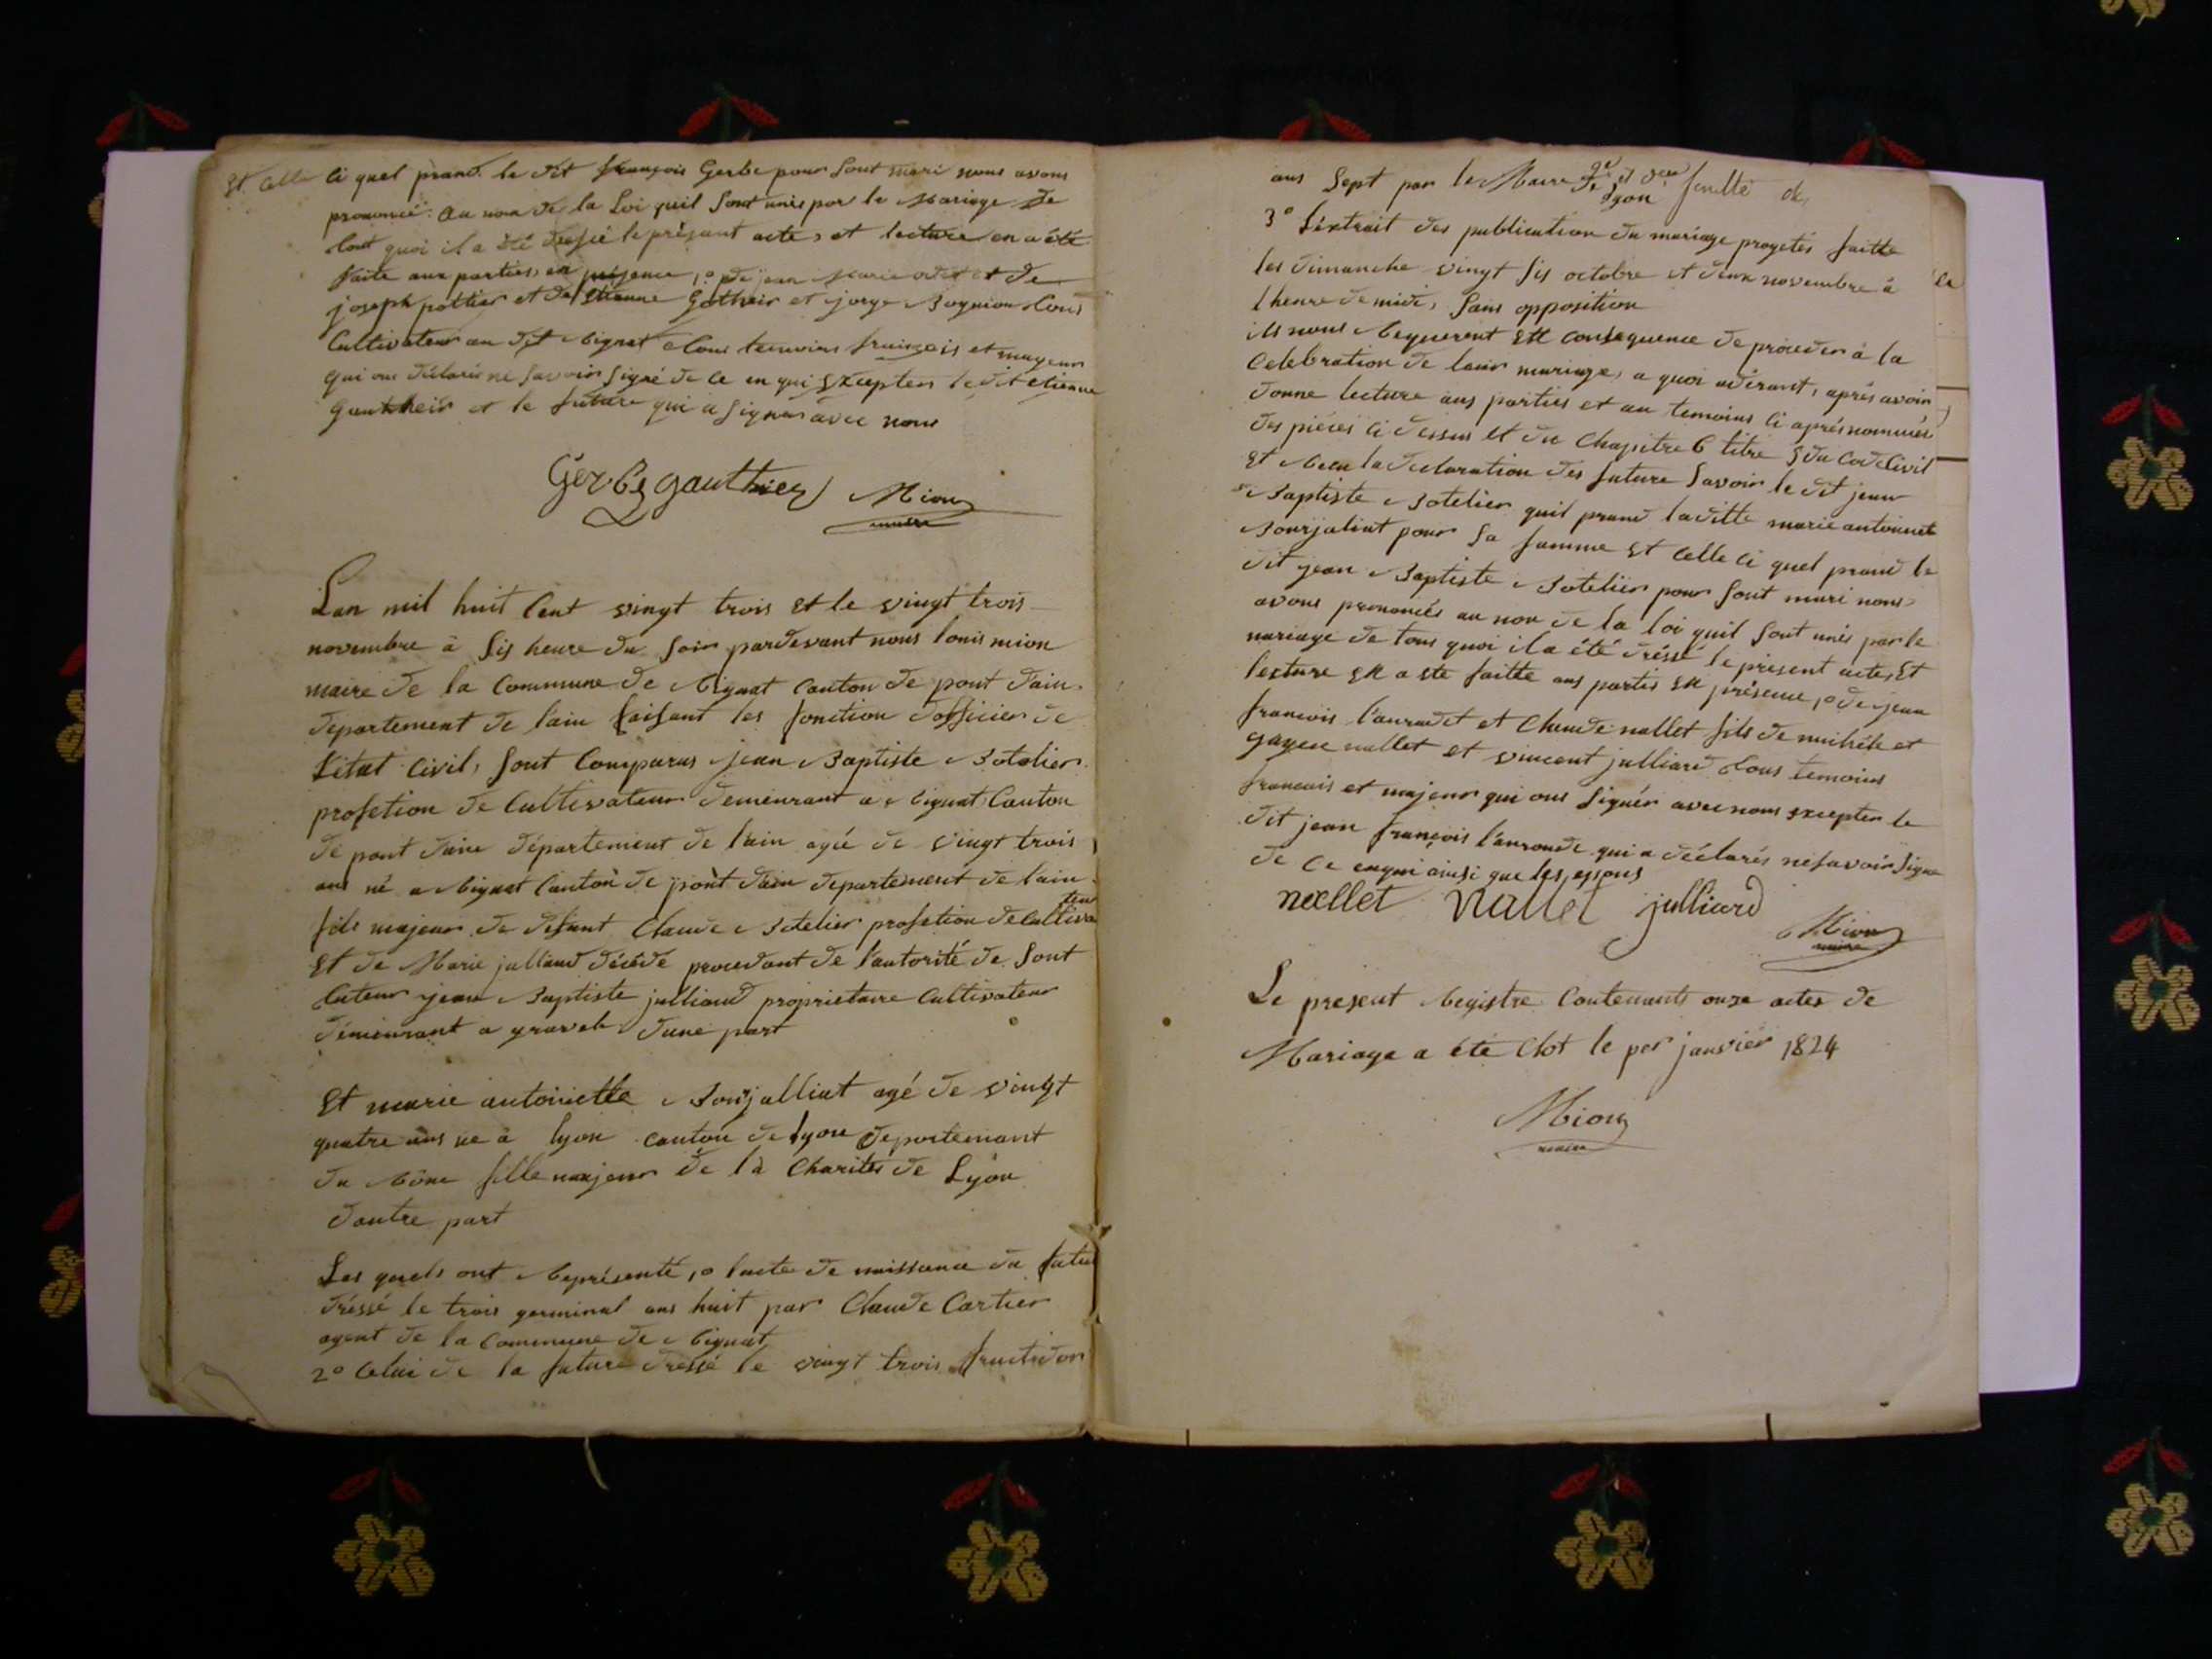 Et Celle Ci quel prand le dit françois Gerbe pour Sont mari nous avons
prononcé au nom de la Loi quil Sont unis par le Mariage de
tout quoi il a été dressé le présant acte, et lecture en a été
faite aux parties, en présence, 1º de jean Marie odet et de
joseph pottier et de Etienne Gotheir et jorge Bognion tous
Cultivateur au dit Rignat tous temoins français et mageur
qui ons déclaré ne savoir signé de ce en qui Excepter le dit etienne
gautheir et le future qui a signer avec nous
Gerbe gauthier Mion
maire
Lan mil huit Cent vingt trois Et le vingt trois
novembre à Sis heure du Soir pardevant nous louis mion
maire de la Commune de Rignat Canton de pont dain
departement de lain faisant les fonction dofficier de
Létat Civil, Sont Comparus jean Baptiste Botelier
profetion de Cultivateur demeurant a Rignat Canton
de pont dain département de lain agé de vingt trois
ans né a Rignat Canton de pont dain departement de lain
fils majeur de defunt Claude Botelier profetion de Cultiva
teur
Et de Marie julliand décéde procedant de l'autorité de Sont
tuteur jean Baptiste julliand proprietaire Cultivateur
démeurant a gravele dune part
Et marie antoinette Bonjalliat agé de vingt
quatre ans né à lyon canton de lyon departemant
du Rône fille majeur de la Charités de Lyon
dautre part
Les quels ont Représenté, 1º lacte de naissance du futur
dréssé le trois germinal ans huit par Claude Cartier
agent de la Commune de Rignat
2º Celui de la future dressé le vingt trois fructidor
ans Sept par le Maire de Lyon
3º Léxtrait des publication du mariage progetés faitte
les dimanche vingt sis octobre et deux novembre à
lheure de midi, Sans opposition
ils nous Requerent En consequence de proceder à la
Celebration de leur mariage, a quoi adérant, aprés avoir
donne lecture aus parties et au temoins Ci aprés nommés
des pièces Ci dessus et du Chapitre 6 titre 5 du Code Civil
Et Recu la declaration des future Savoir le dit jean
Baptiste Botelier quil prand laditte marie antoinet
Bonjaliat pour Sa famme Et Celle Ci quel prand le
dit jean Baptiste Botelier pour Sont mari nous
avons prononcés au nom de la loi quil Sont unis par le
mariage de tous quoi il a été dréssé le présent acte, Et
lecture En a ete faitte aus partis En présence, 1º de jean
francois l'auradet et Claude nallet fils de michéle et
gayeu nallet et vincent julliard tous temoins
francais et majeur qui ons Signér avec nous excepter le
dit jean françois l'auroude qui a déclarés ne savoir Signe
de Ce enqui ainsi que les epous
nallet Nallet julliard
Mion
maire
Le present Registre Contenants onze actes de
Mariage a été Clot le per janvier 1824
Mion
maire